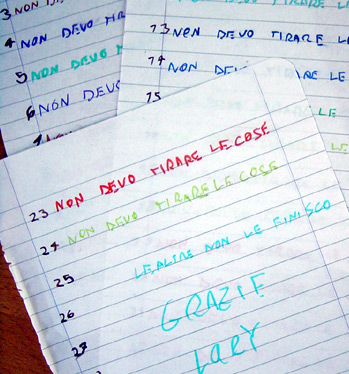 3 NON
4 NON DEVO
5 NON DEVO
6 NON DEVO
73 NON DEVO TIRARE LE
74 NON LE
75
LE
LE
23 NON DEVO TIRARE LE COSE
24 NON DEVO TIRARE LE COSE
25 LE ALTRE NON LE FINISCO
26 GRAZIE
27 LARY